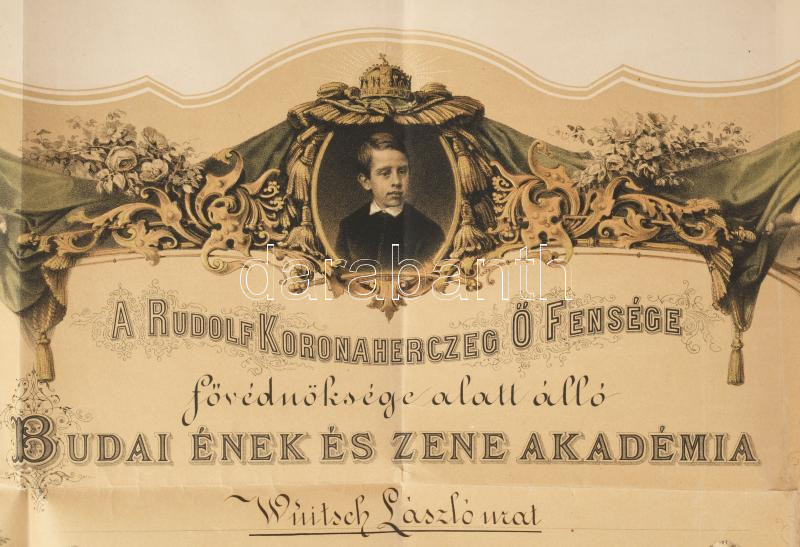 darabanth
A RUDOLF KORONAHERCZEG Ő FENSÉGE
fővédnöksége alatt álló
BUDAI ÉNEK ÉS ZENE AKADÉMIA
Wuitsch László urat